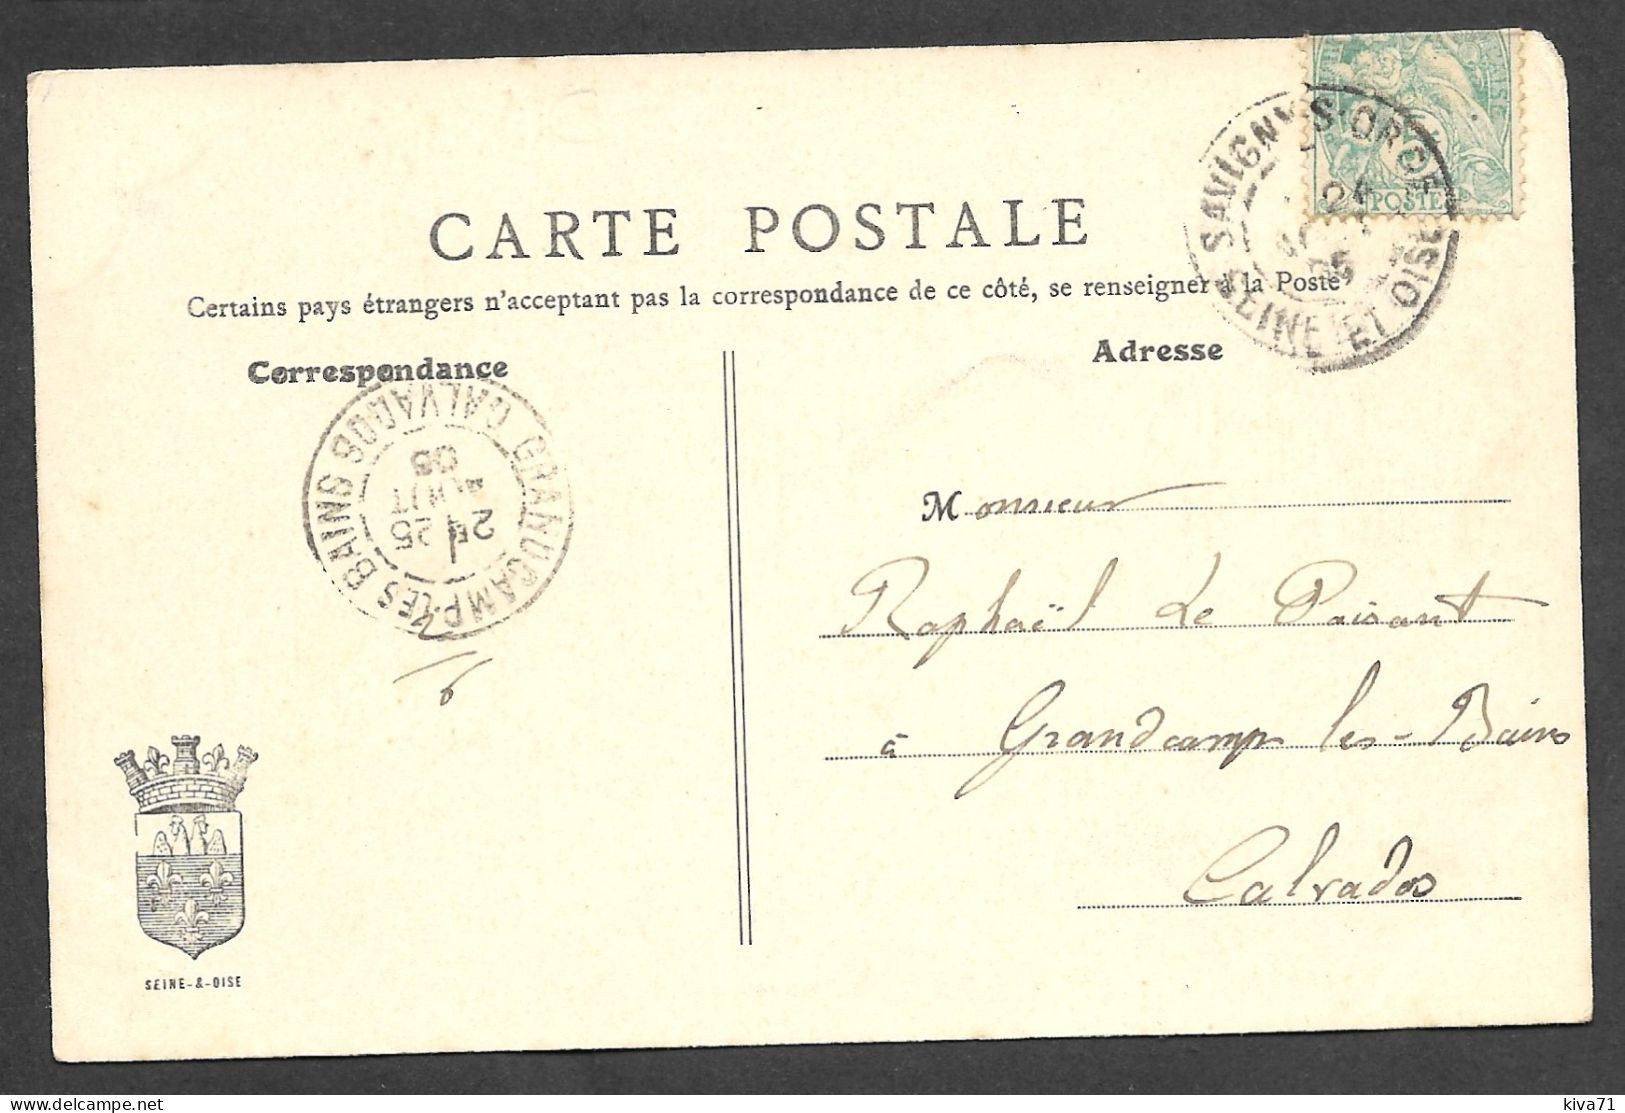 CARTE POSTALE
Certains pays étrangers n'acceptant pas la correspondance de ce côté, se renseigner à la Poste
Correspondance
Adresse
SAVIGNY-S-ORGE
SEINE ET OISE
POSTE
GRANDCAMP-LES BAINS CALVADOS
2E 25
AOUT
05
Monsieur
Raphaël Le Paisant
à Grandcamp les-Bains
Calvados
SEINE-&-OISE
kiva71